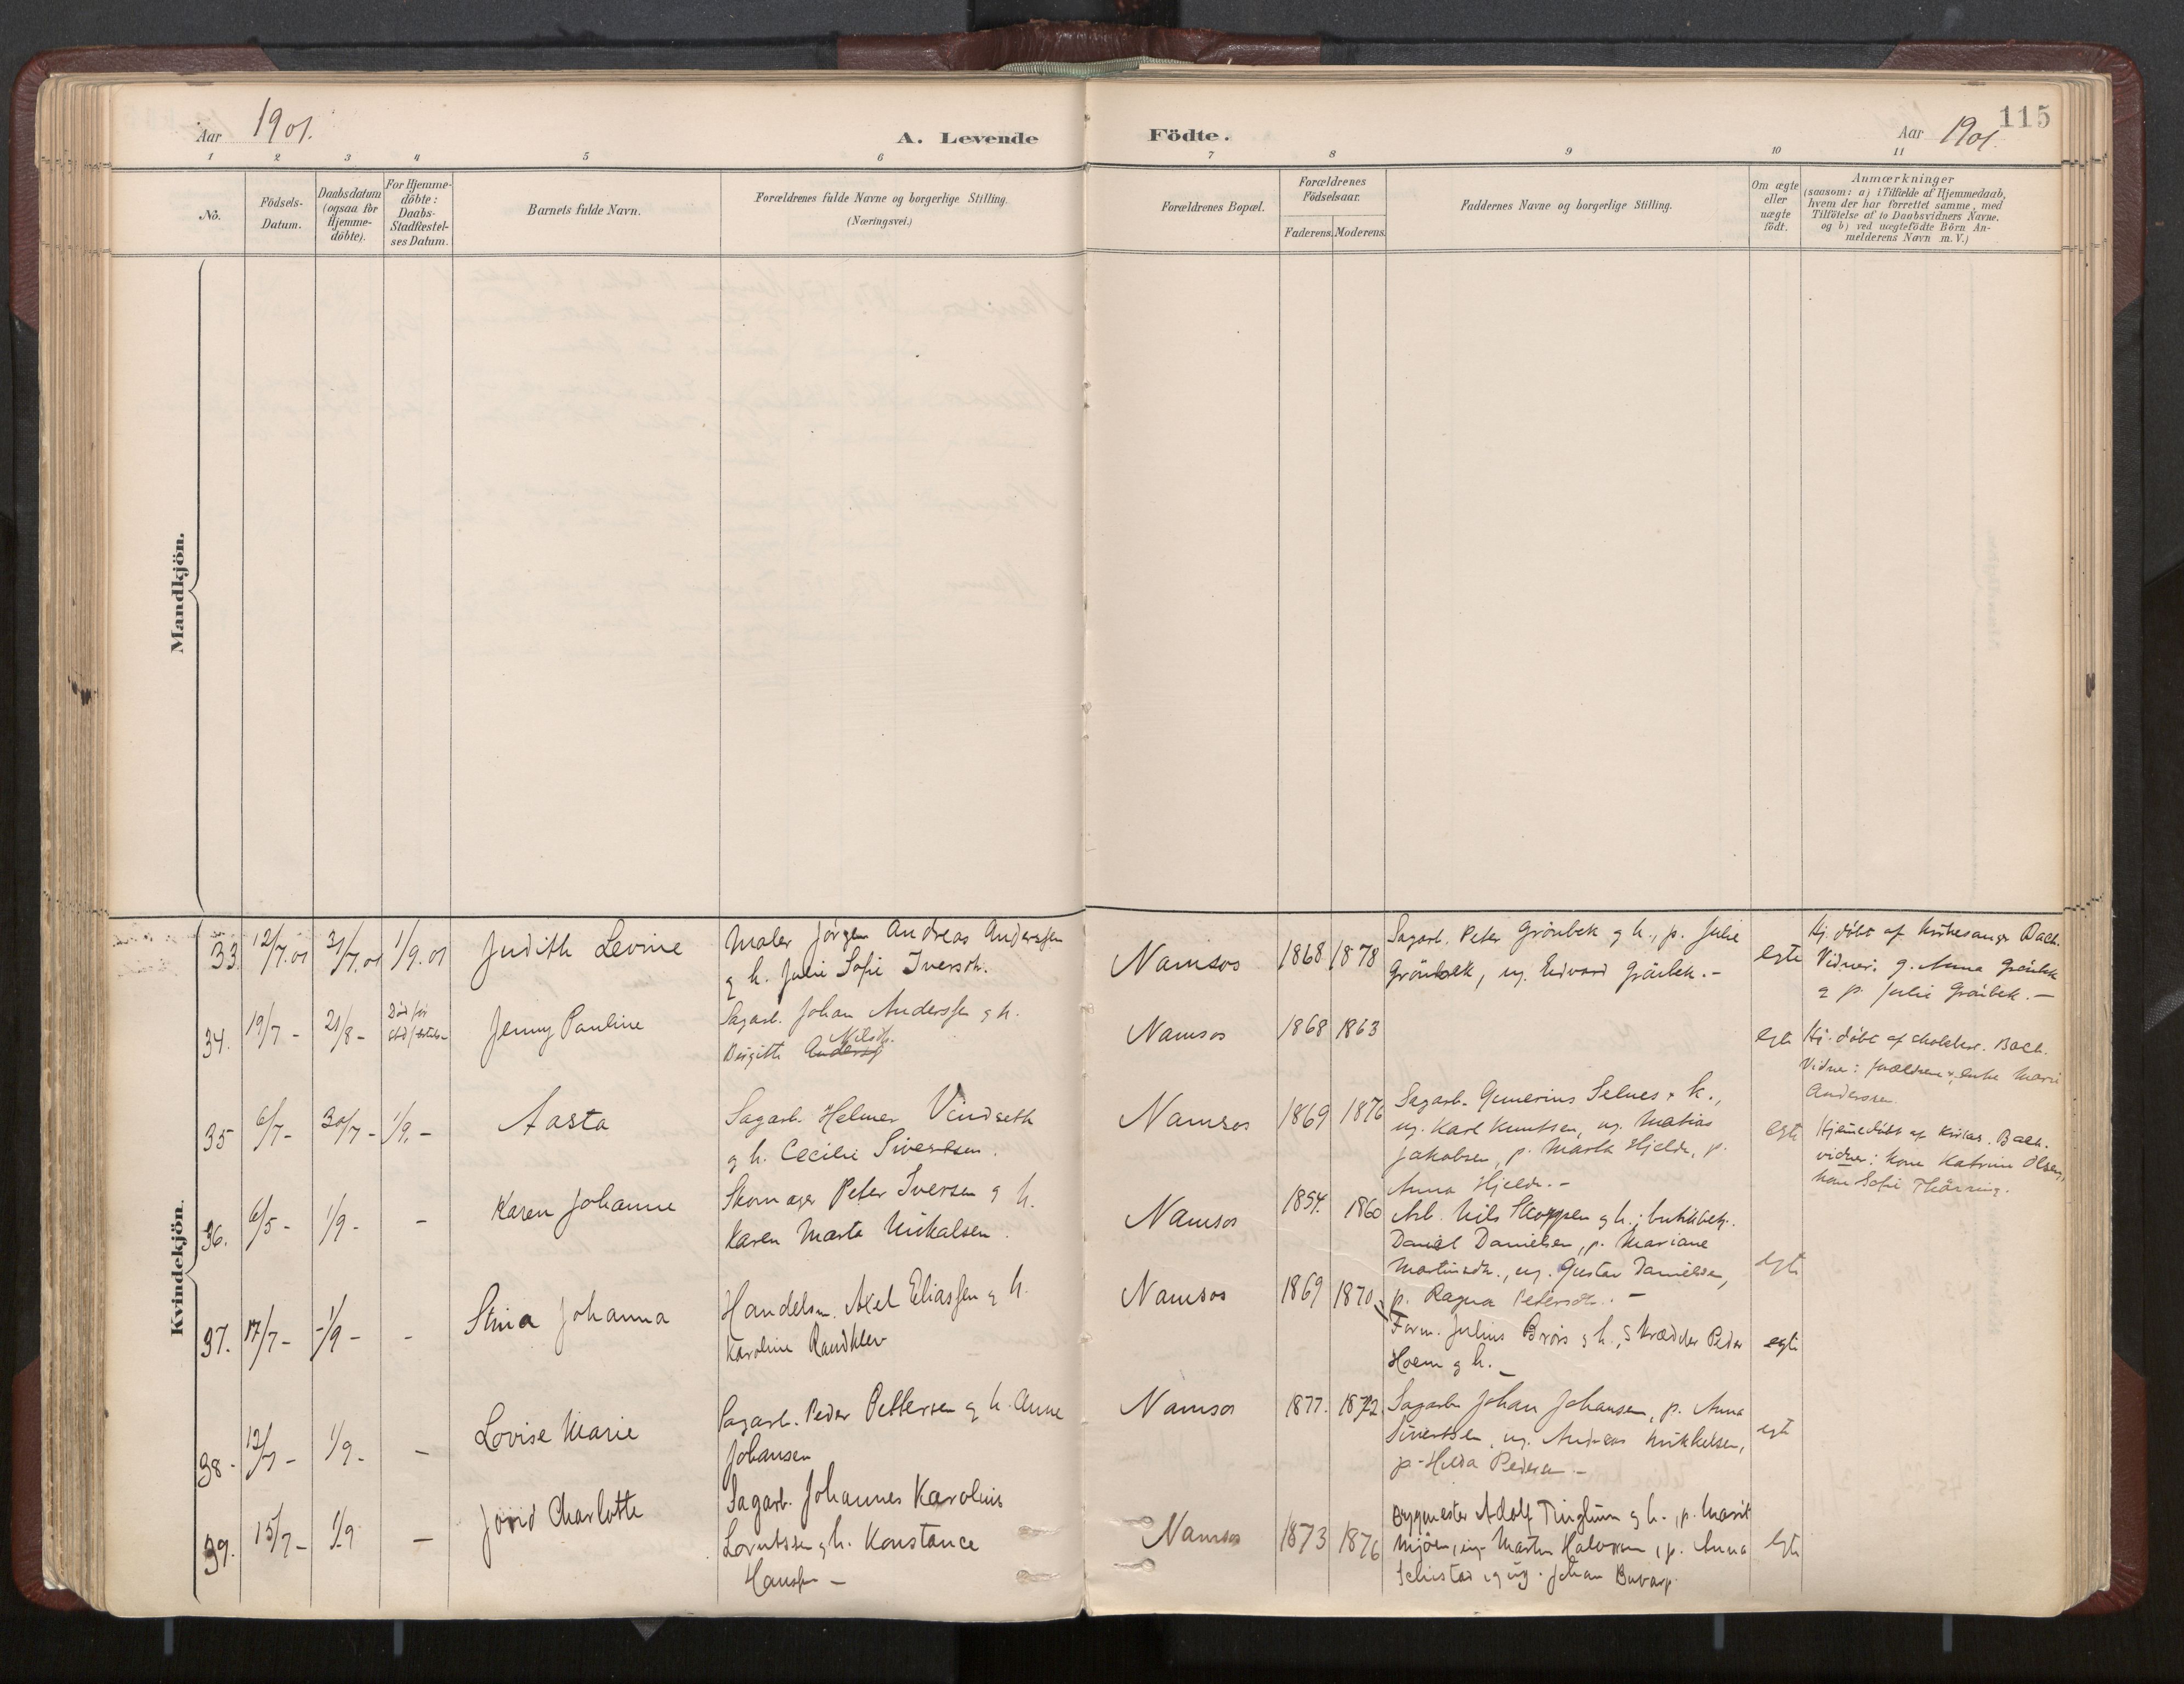 115
Aar 1901.
A. Levende Födte.
Aar 1901.
1 2 3 4 5 6 7 8 9 10 11
No.
Födsels-
Datum.
Daabsdatum
(ogsaa for
Hjemme-
döbte).
For Hjemme-
döbte:
Daabs-
Stadfæstel-
ses Datum.
Barnets fulde Navn.
Forældrenes fulde Navne og borgerlige Stilling.
(Næringsvei.)
Forældrenes Bopæl.
Forældrenes
Födselsaar.
Faderens. Moderens.
Faddernes Navne og borgerlige Stilling.
Om ægte
eller
uægte
födt.
Anmærkninger
(saasom: a) i Tilfælde af Hjemmedaab,
hvem der har forrettet samme, med
Tilföielse af to Daabsvidners Navne.
og b) ved uægtefödte Börn An-
melderens Navn m. V.)
Mandkjön.
Kvindekjön.
33. 12/7.01 31/7.01 1/9.01
Judith Levine
Maler Jörgen Andreas Anderssen
g h. Julie Sofie Iversdr.
Namsos
1868 1878
Sagarb. Peter Grönbek g h., p. Julie
Grönbek, ug. Edvard Grönbek. -
egte
Hj. döbt af Kirkesanger Bach.
Vidner: g. Anna Grönbek
g p. Julie Grönbek. -
34. 19/7 - 21/8 -
Död för
Jenny Pauline
Sagarb. Johan Anderssen g h.
Nilsdr.
Birgitte Anderss
Namsos
1868 1863
egte
Hj. döbt af Bach.
Vidner: forældrene, enke Marie
Anderssen
35 6/7 - 30/7 - 1/9. -
Aasta
Sagarb. Helmer Vindseth
g h. Cecilie Sivertsen.
Namsos
1869 1876
Sagarb. Gunerius Selnes g k.,
ug. Karl Knutsen, ug. Matias
Jakobsen, p. Marta Hjelde, p.
Anna Hjelde. -
egte
Hjemmedöbt af Kirkes. Bach.
vidner: kone Katrine Olsen,
kone Sofie Thörring.
36. 6/5 - 1/9 - -
Karen Johanne
Skomager Peter Iversen g h.
Karen Marta Mikalsen.
Namsos
1854. 1860
Arb. Nils Skoggen g h.; butikbetj.
Daniel Danielsen, p. Mariane
Martinsdr., ug. Gustav Danielsen,
p. Ragna Petersdr. -
egte
37. 17/7 - 1/9 - -
Stina Johanna
Handelsm. Axel Eliassen g h.
Karoline Randklev
Namsos
1869 1870
Form. Julius Brörs g h., Skrædder Peder
Hoem g h. -
egte
38. 12/7 - 1/9 - -
Lovise Marie
Sagarb. Peder Pettersen g h. Anne
Johansen
Namsos
1877. 1872.
Sagarb. Johan Johansen, p. Anna
Sivertsen, ug. Andreas Mikkelsen,
p. Hilda Pedersen -
egte
39. 15/7 - 1/9 -
Jörid Charlotte
Sagarb. Johannes Karolius
Lorntssen g h. Konstance
Hanssen -
Namsos
1873 1876
Bryggmester Adolf Tinglum g h., p. Marit
Mjöen, ug. Martin Halvorsen, p. Anna
g ug. Johan Buvarp.
egte